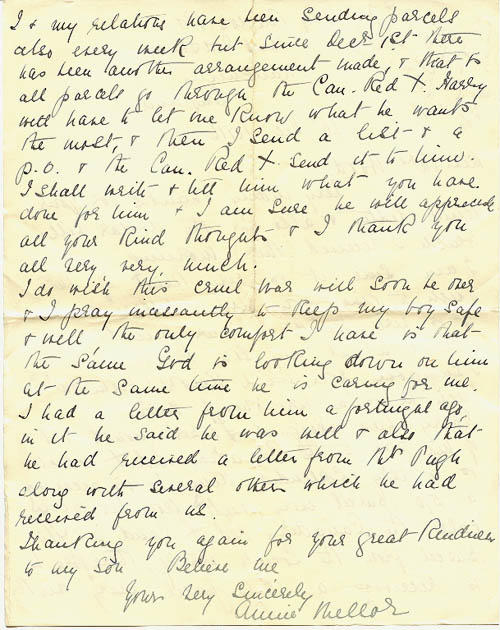 I & my relations have been sending parcels
also every week but since Decr 1st there
has been another arrangement made, & that is
all parcels go through the Can. Red X. Harry
will have to let me know what he wants
the most, & then I send a list & a
p.o. & the Can. Red X send it to him.
I shall write & tell him what you have
done for him & I am sure he will appreciate
all your kind thoughts & I thank you
all very very, much.
I do wish this cruel war will soon be over
& I pray incessantly to keep my boy safe
& well the only comfort I have is that
the same God is looking down on him
at the same time he is caring for me.
I had a letter from him a fortnight ago,
in it he said he was well & also that
he had received a letter from Mr Pugh
along with several others which he had
received from us.
Thanking you again for your great kindness
to my son Believe me
Yours very sincerely
Annie Mellor